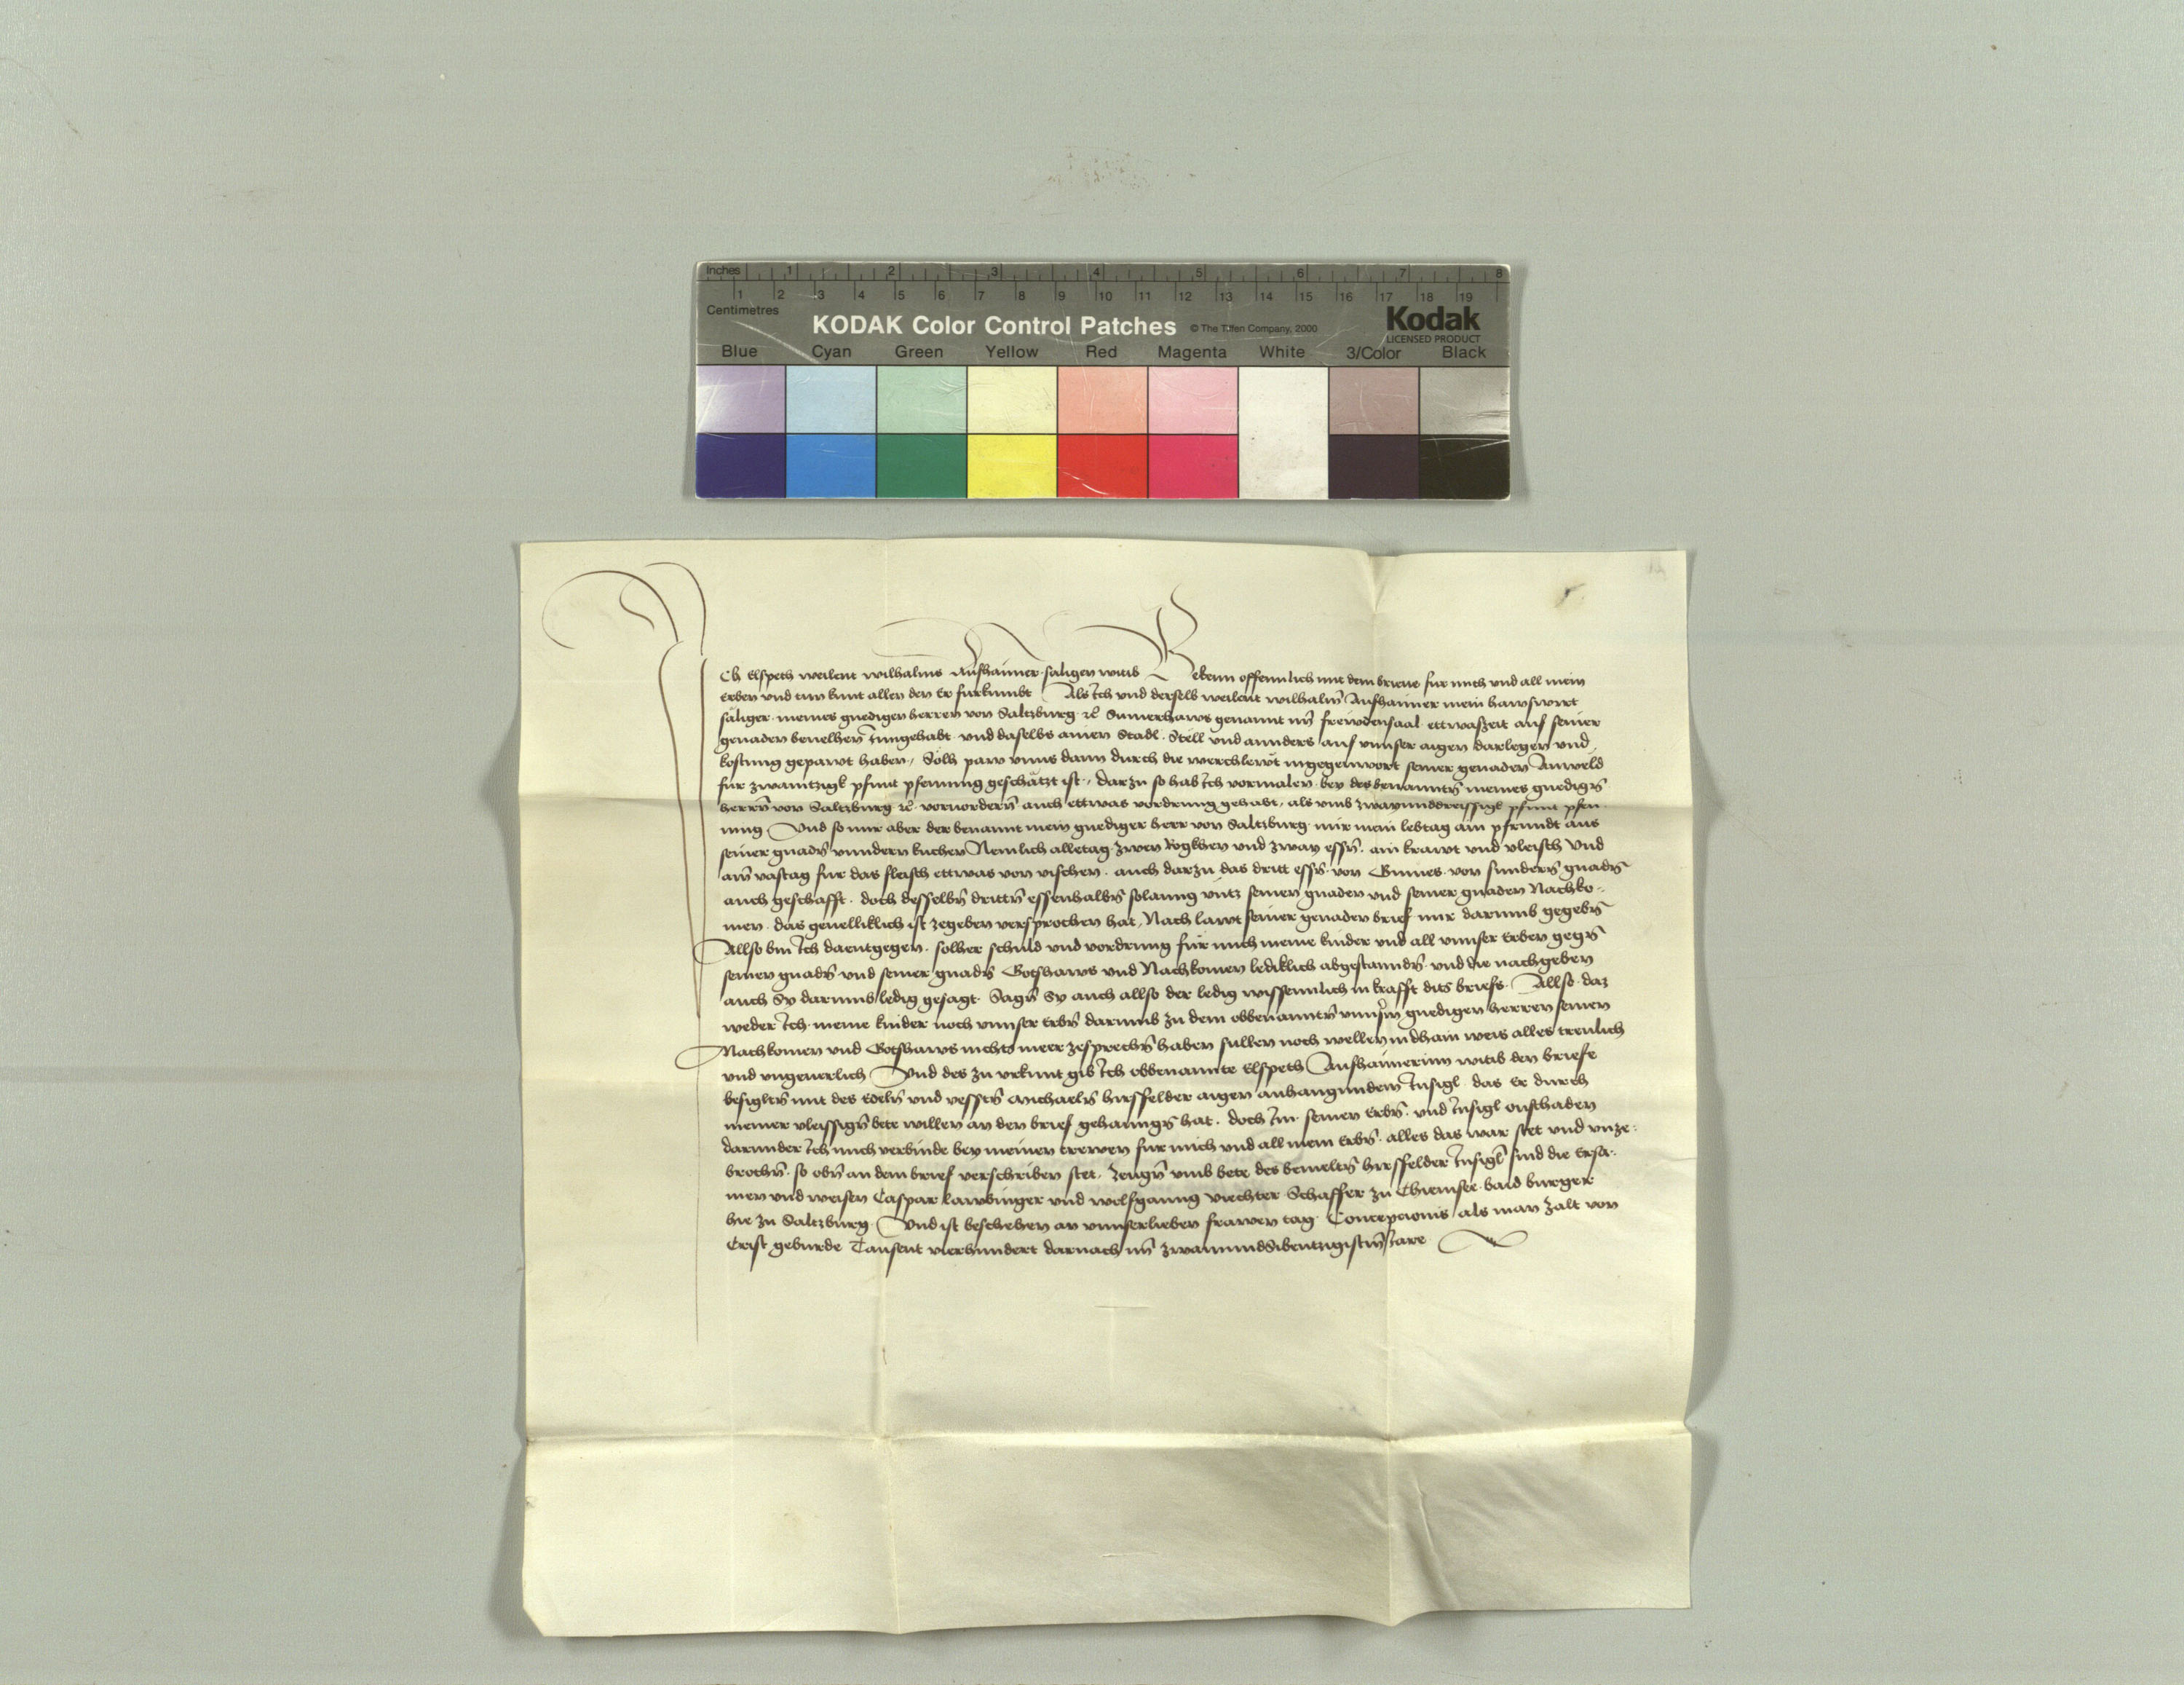 Inches 1 2 3 4 5 6 7 8
1 2 3 4 5 6 7 8 9 10 11 12 13 14 15 16 17 18 19
Centimetres
KODAK Color Control Patches © The Tiffen Company, 2000 Kodak
LICENSED PRODUCT
Blue Cyan Green Yellow Red Magenta White 3/Color Black
Ich Elspeth weilent wilhalms Aufhaimer saligen witib Bekenn offennlich mit dem brieue fur mich und all mein
Erben vnd tun kunt allen den Er furkumbt Als Ich vnd derselb weilent wilhalm Aufhaimer mein hawswirt
säliger meines gnedigen herren von Saltzburg etc Sumerhaws genannt im frewdensaal ettwaszeit auf seiner
genaden beuelhen Inngehabt vnd daselbs ainen Stadl Stell vnd annders auf vnnser aigen darlegen vnd
kostung gepawt haben, Solh paw vnns dann durch die werchlewt ingegenwort seiner genaden Anweld
für zwaintzigk pfunt pfenning geschätzt ist, darzu so hab Ich vormalen bey des benannten meines gnedigen
herren von Saltzburg etc voruordern auch ettwas vordrung gehabt, als vmb zwayunddreissigk pfunt pfen
ning Vnd so nur aber der benannt mein gnediger herr von Saltzburg mir mein lebtag ain pfrundt aus
seiner gnaden vnndern kuchen Nemlich alletag zwen Rogkhen vnd zway essen ain krawt vnd vleisch Vnd
am vastag fur das fleisch ettwas von vischen auch darzu das dritt essen von Gmues von sundern gnaden
auch geschafft doch desselben dritten essenhalben solanng vntz seinen gnaden vnd seiner gnaden Nachko-
men das geuelliklich ist zegeben versprochen hat, Nach lawt seiner genaden brief mir darumb gegeben
Allso bin Ich daentgegen solher schuld vnd vordrung für mich meine kinder vnd all vnnser Erben gegen
seinen gnaden vnd seiner gnaden Gotshaws vnd Nachkomen lediklich abgestannden vnd die nachgeben
auch Sy darumb ledig gesagt Sagen Sy auch allso der ledig wissennlich in krafft dits briefs Allso daz
weder Ich meine kinder noch vnnser Erben darumb zu dem obbenannten vnnserm gnedigen herren seinen
Nachkomen vnd Gotshaws nichts meer zesprechen haben sullen noch wellen in dhain weis alles treulich
vnd vngeuerlich Vnd des zu vrkunt gib Ich obbenannte Elspeth Aufhaimerinn witib den briefe
besiglten mit des Edeln vnd vessten Michaelen hirssfelder aigen anhangunndem Insigl das Er durch
meiner vleissigen bete willen an den brief gehanngen hat doch Im seinen Erben vnd Insigl onschaden
darunder Ich mich verbinde bey meinen trewen fur mich vnd all mein Erben alles das war stet vnd vnze-
brochen so oben an dem brief verschriben stet, Zeugen vmb bete des bemelten hirssfelder Insigl sind die Ersa-
men vnd weisen Caspar Lawbinger vnd wolfganng viechter Schaffer zu Chiemsee baid burger
hie zu Saltzburg Vnd ist beschehen an vnnserlieben frawen tag Concepcionis als man zalt von
Crist geburde Tausent vierhundert darnach im zwaiundSibentzigistem Jare